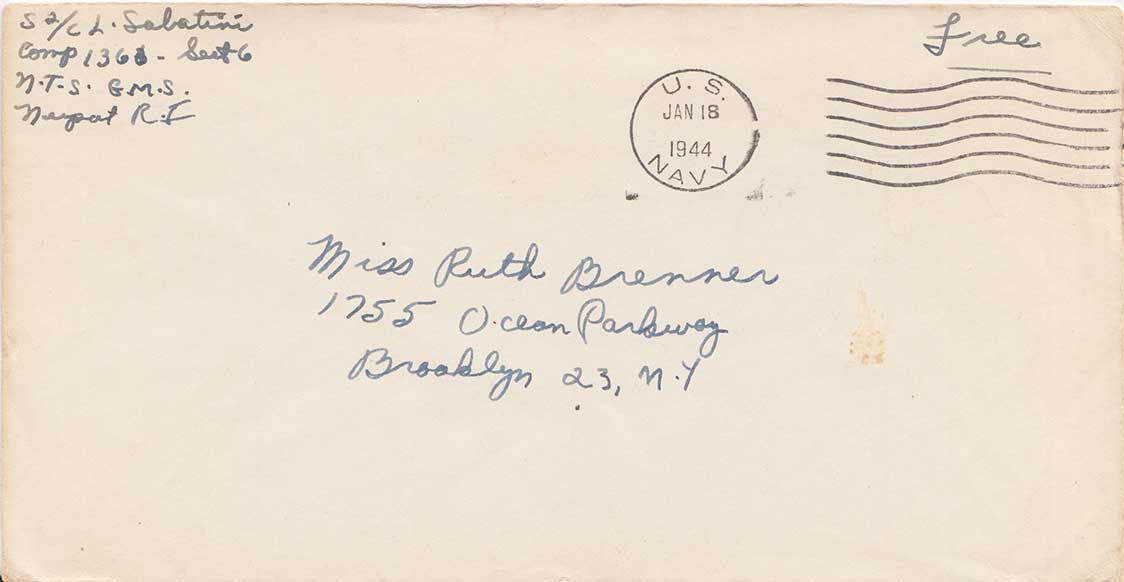 S 2/c L. Sabatini
Comp 1361 - Sect 6
N.T.S. G.M.S.
Newport R.I
Free
U. S.
JAN 18
1944
NAVY
Miss Ruth Brenner
1755 Ocean Parkway
Brooklyn 23, N.Y